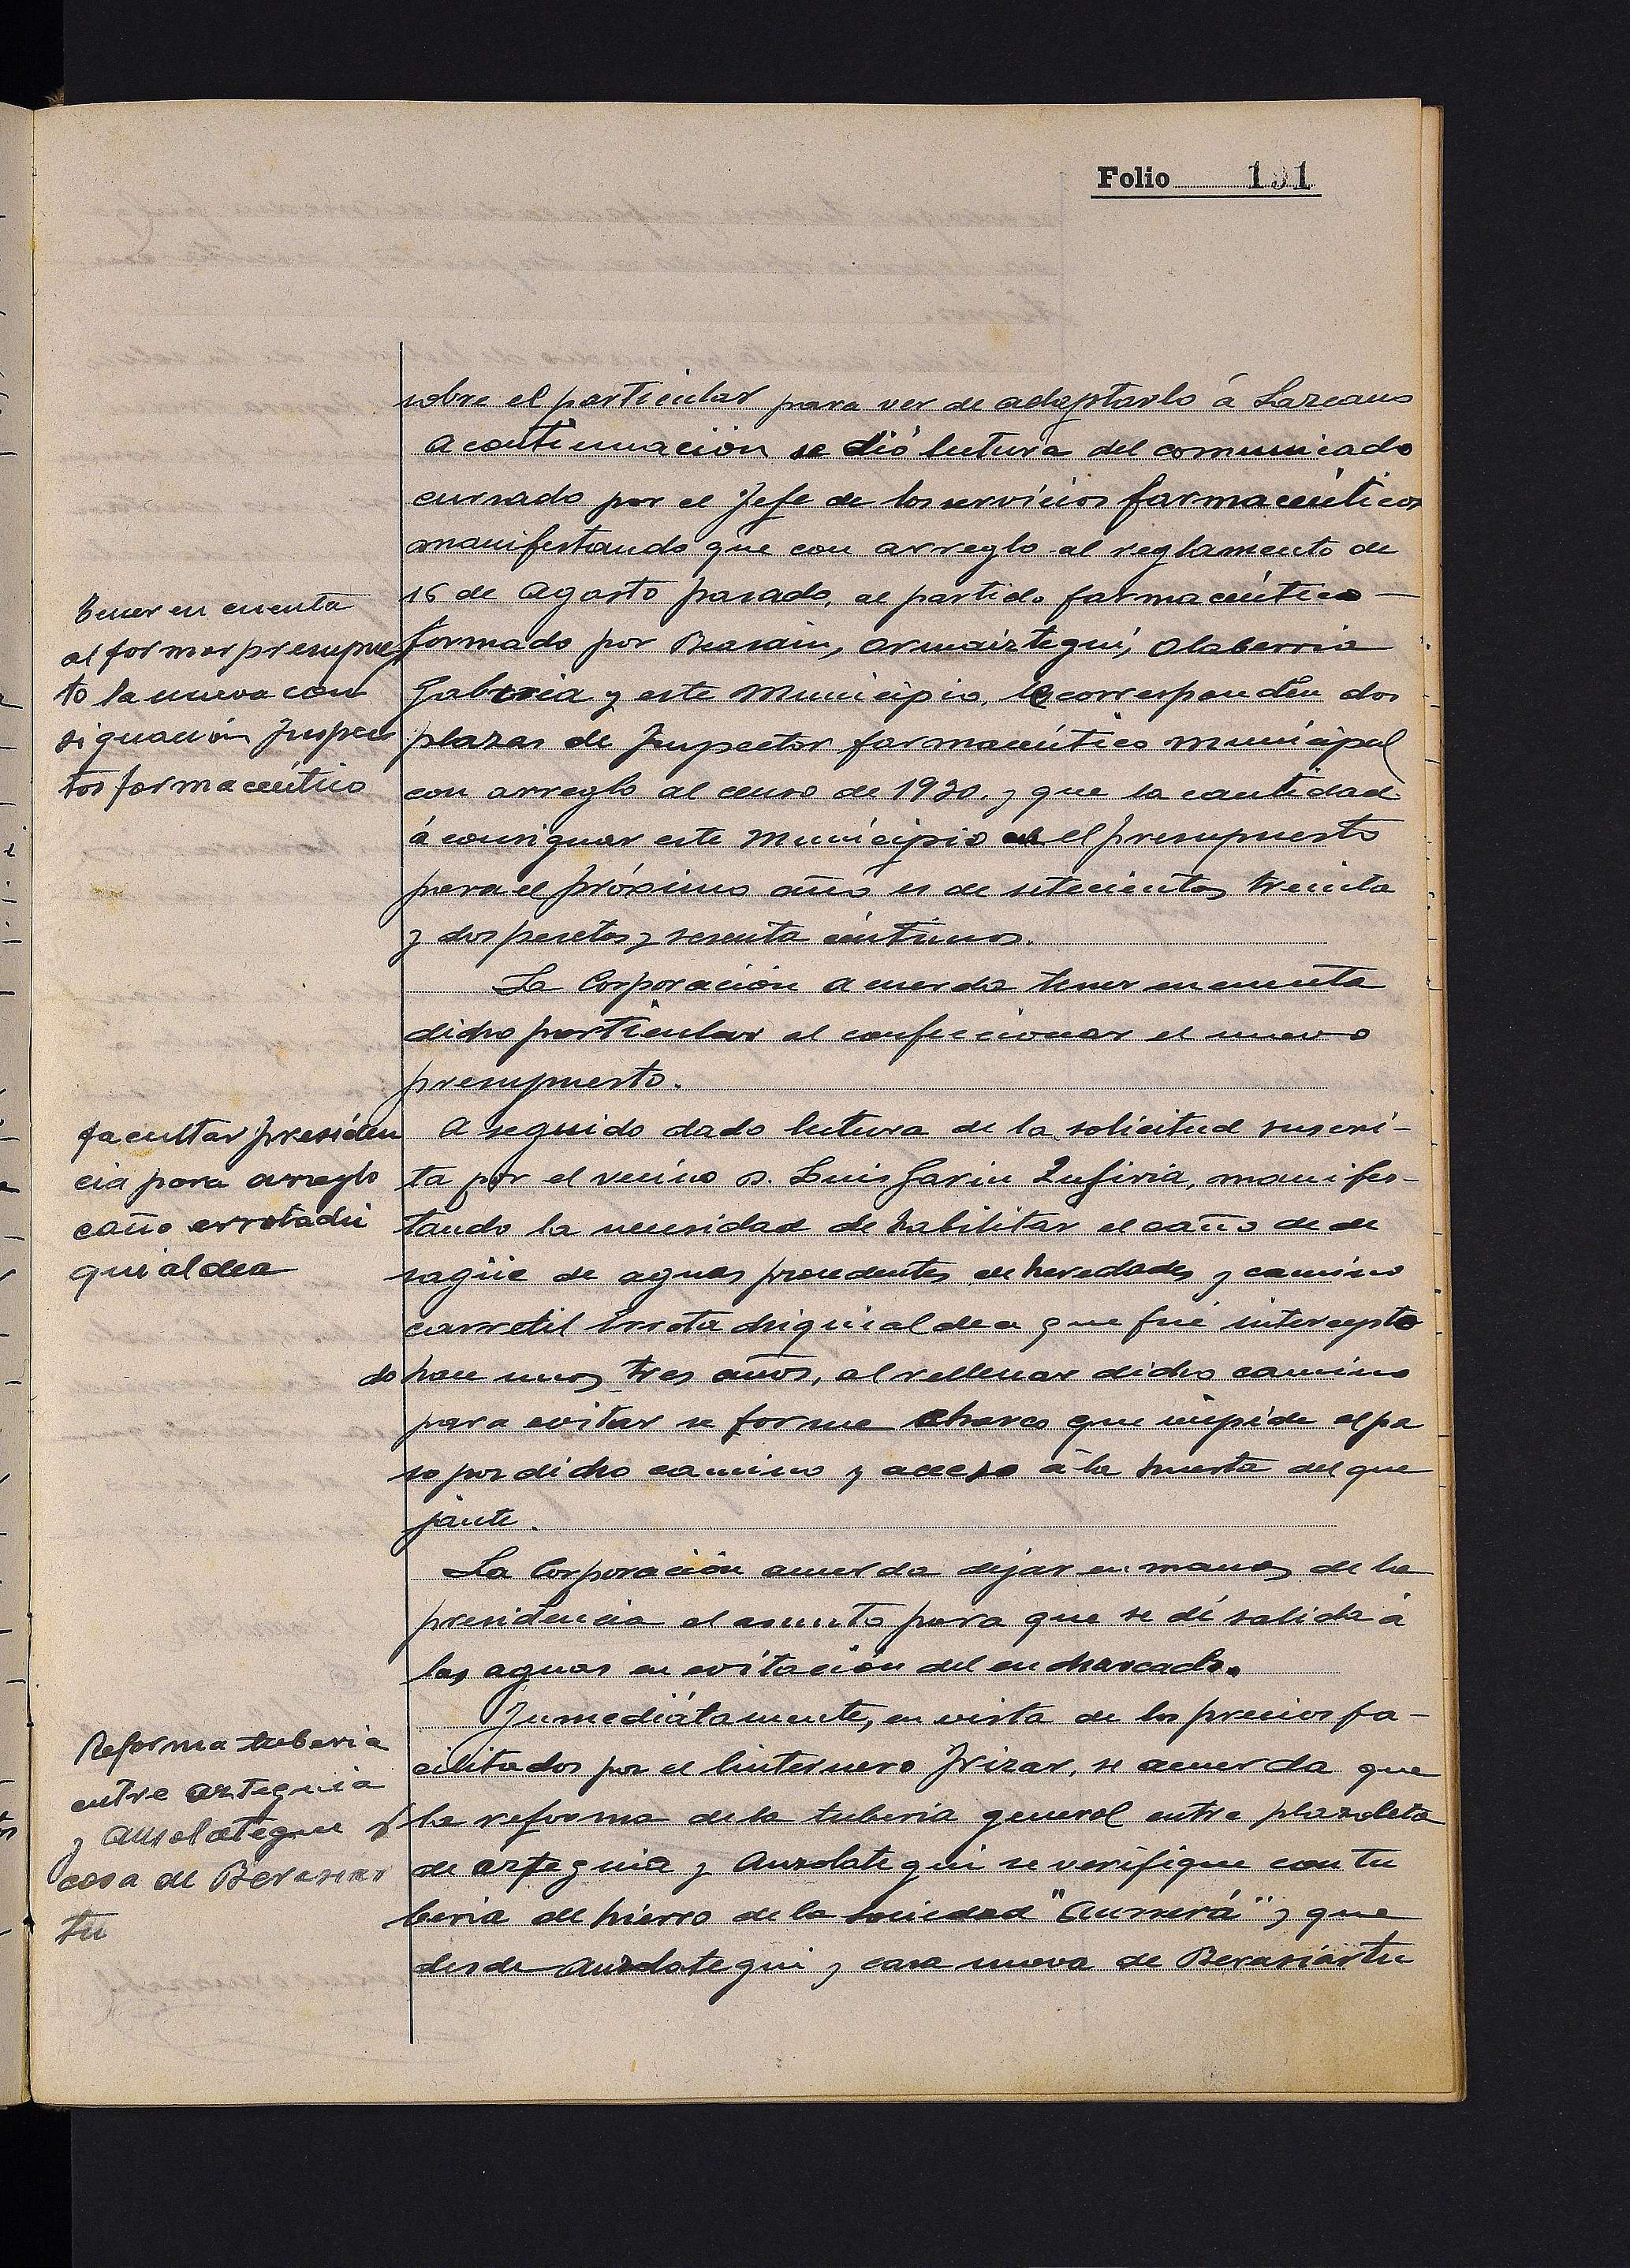 Folio 191
sobre el particular para ver de adaptarlo á Lazcano
A continuación se dió lectura del comunicado
cursado por el Jefe de los servicios farmacéuticos
manifestando que con arreglo al reglamento de
16 de Agosto pasado, al partido farmacéutico —
formado por Beasain, Armaiztegui, Olaberria
Gabiria y este Municipio, le corresponden dos
plazas de Inspector farmacéutico municipal
con arreglo al censo de 1930, y que la cantidad
á consignar este Municipio en el presupuesto
para el próximo año es de setecientas treinta
y dos pesetas y sesenta céntimos.
Tener en cuenta
al formar presupues
to la nueva con
signación Inspec
tor farmacéutico
La Corporación acuerda tener en cuenta
dicho particular al confeccionar el nuevo
presupuesto.
A seguido dado lectura de la solicitud suscri-
ta por el vecino D. Luis Garin Zufiria, manifes-
tando la necesidad de habilitar el caño de de
sagüe de aguas procedentes de heredades y camino
carretil Errota chiquialdea que fué intercepta
do hace unos tres años, al rellenar dicho camino
para evitar se forme charco que impide el pa
so por dicho camino y acceso á la huerta del que
jante.
facultar presiden
cia para arreglo
caño errotachi
quialdea
La Corporación acuerda dejar en manos de la
presidencia el asunto para que se dé salida á
las aguas en evitación del encharcado.
Inmediátamente, en vista de los precios fa-
cilitados por el linternero Irizar, se acuerda que
la reforma de la tuberia general entre plazoleta
de arteguia y Auzolategui se verifique con tu
beria de hierro de la sociedad "Aurrerá" y que
desde Auzolategui y casa nueva de Berasiartu
Reforma tuberia
entre arteguia
y Auzolategui y
casa de Berasiar
tu